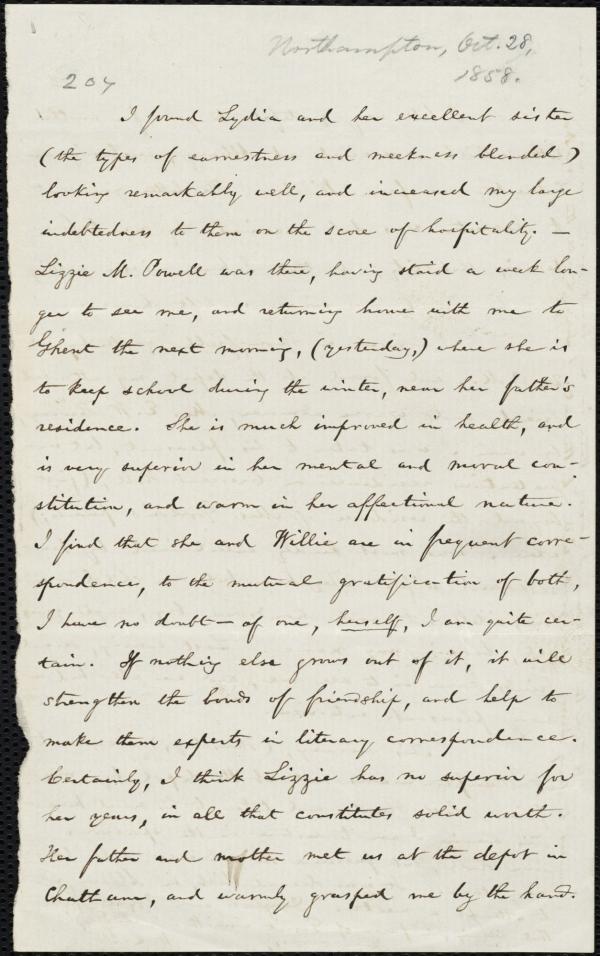 Northampton, Oct. 28,
1858.
204
I found Lydia and her excellent sister
(the types of earnestness and meekness blended)
looking remarkably well, and increased my large
indebtedness to them on the score of hospitality. —
Lizzie M. Powell was there, having staid a week lon-
ger to see me, and returning home with me to
Ghent the next morning, (yesterday,) where she is
to keep school during the winter, near her father's
residence. She is much improved in health, and
is very superior in her mental and moral con-
stitution, and warm in her affectional nature.
I find that she and Willie are in frequent corre-
spondence, to the mutual gratification of both,
I have no doubt — of one, herself, I am quite cer-
tain. If nothing else grows out of it, it will
strengthen the bonds of friendship, and help to
make them experts in literary correspondence.
Certainly, I think Lizzie has no superior for
her years, in all that constitutes solid worth.
Her father and mother met us at the depot in
Chatham, and warmly grasped me by the hand.